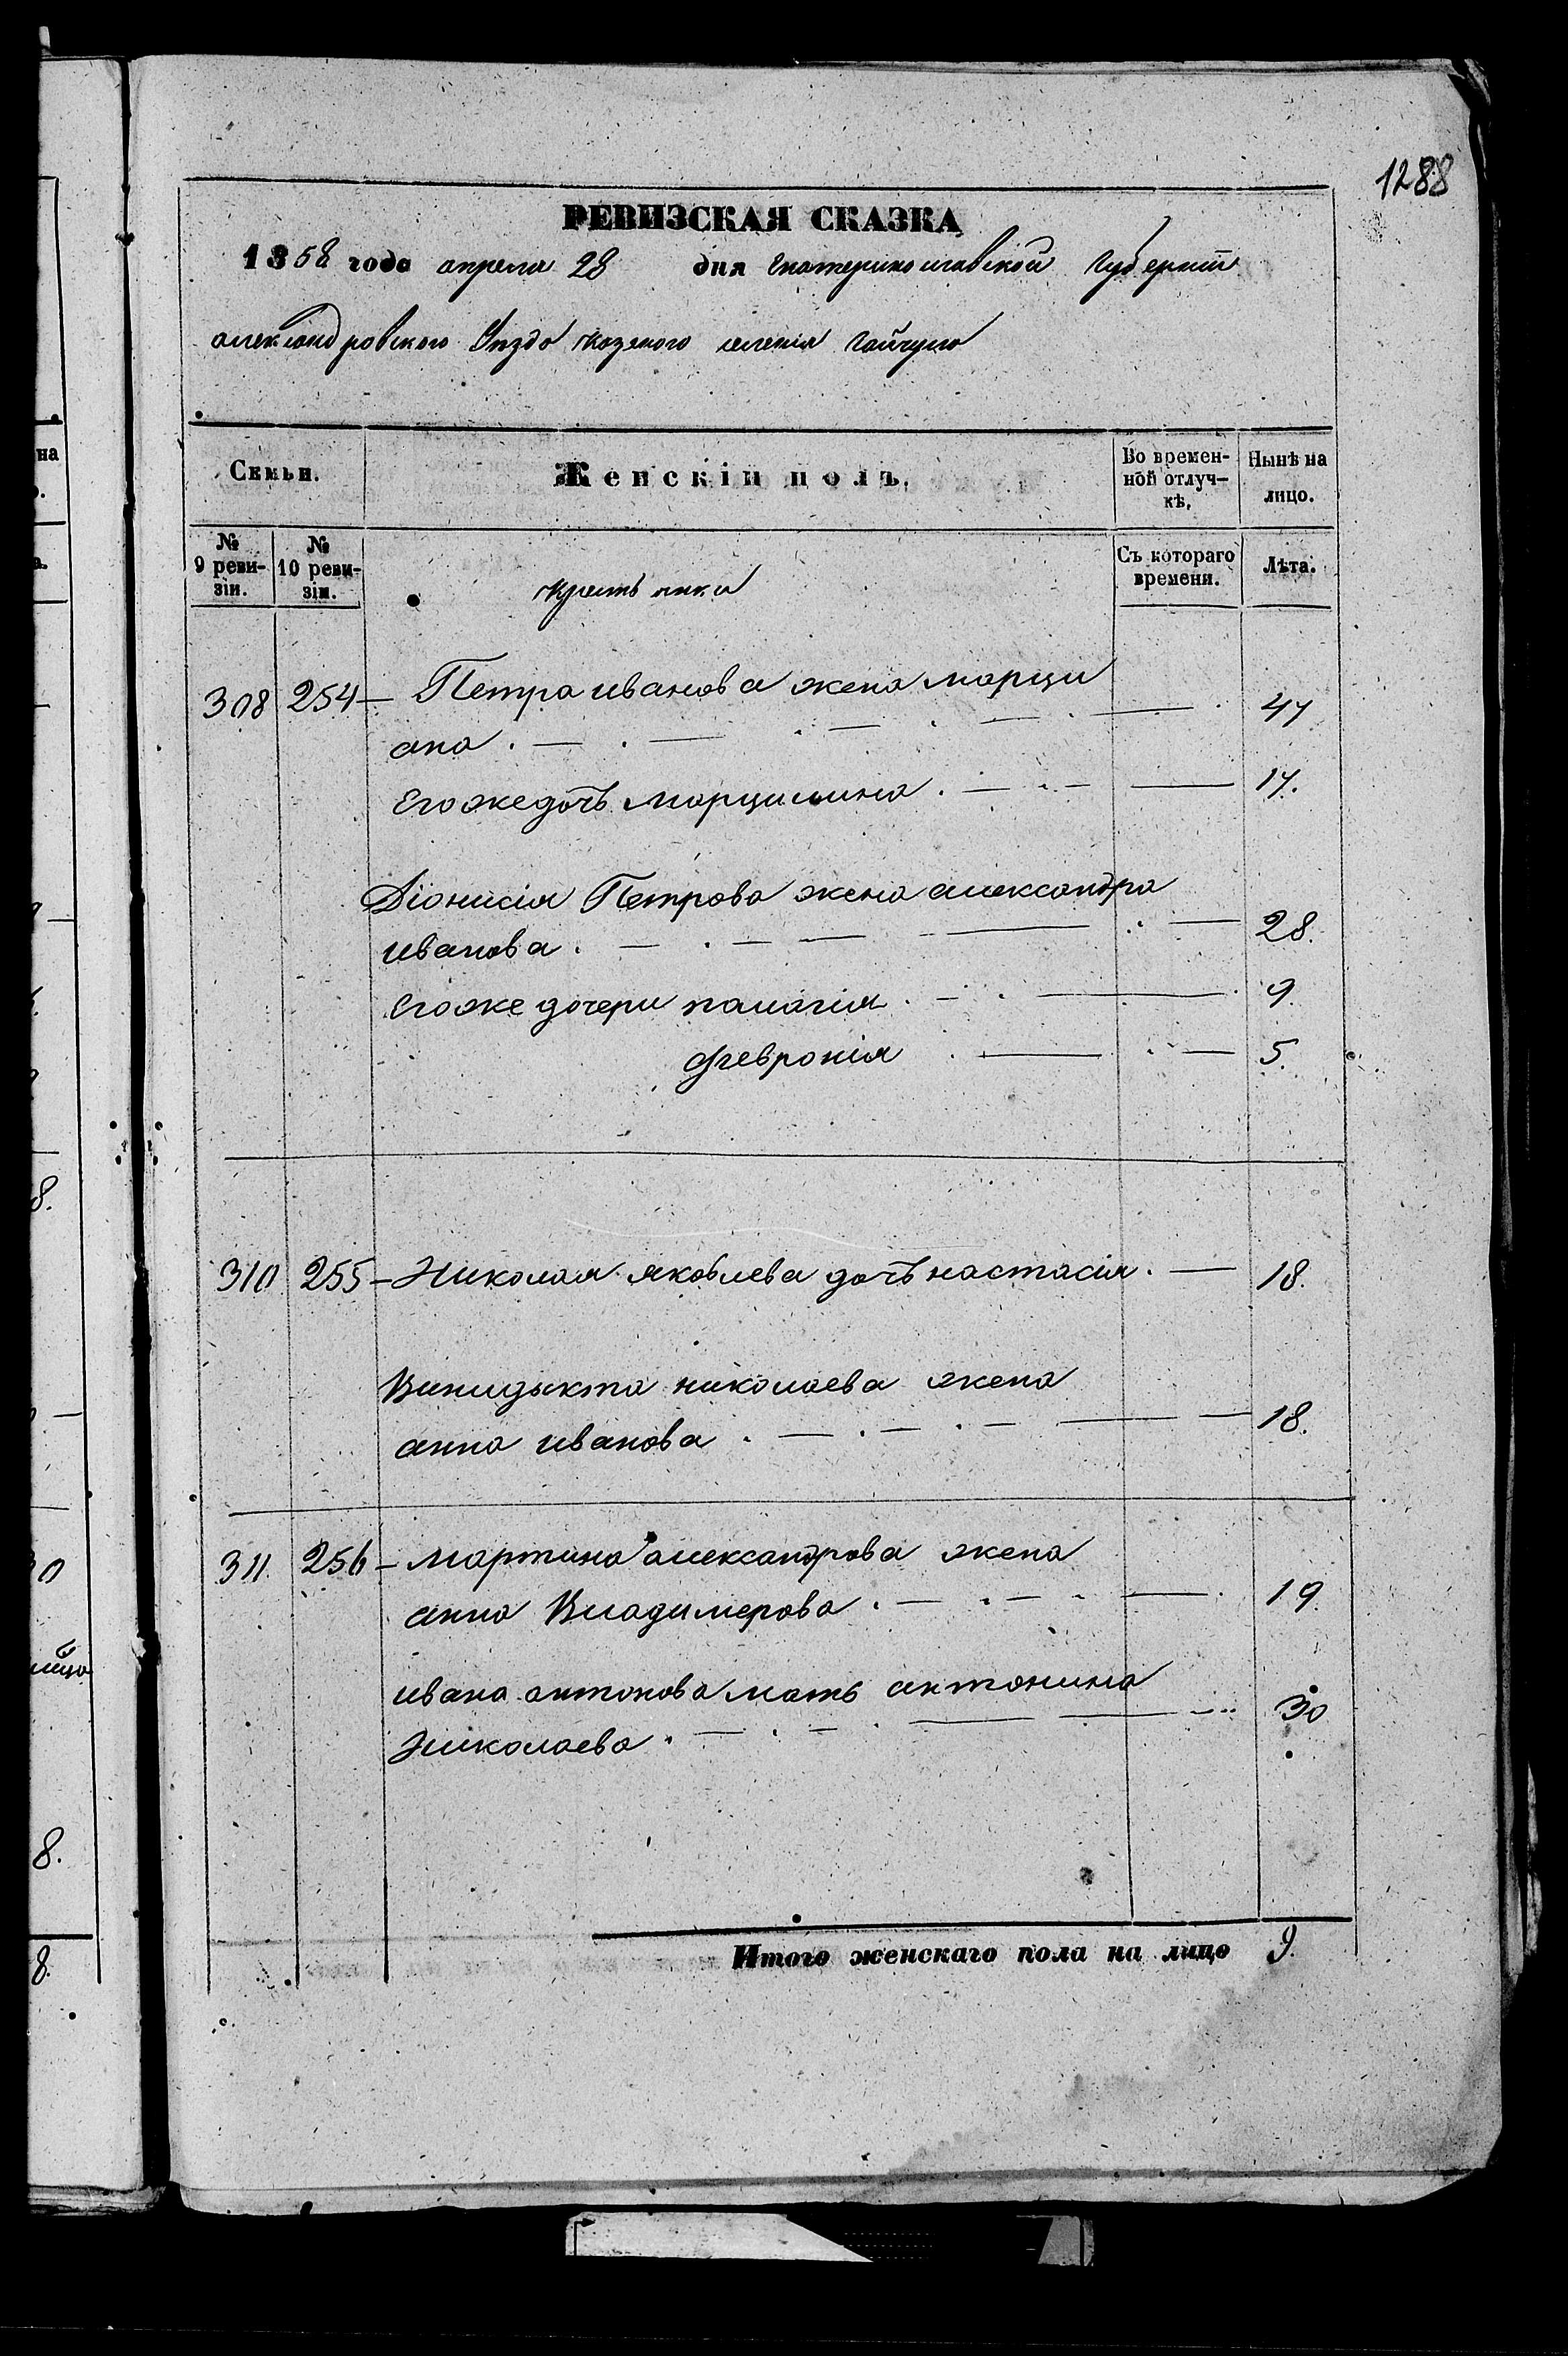 1288
РЕВИЗСКАЯ СКАЗКА
1858 года апреля 28 дня Екатеринославской Губернии
александровского Уезда казеного селения Гайчула
Семьи.
Женскій полъ.
Во времен-
ной отлуч-
кѣ.
Нынѣ на
лицо.
№
9 реви-
зіи.
№
10 реви-
зіи.
крестьянки
Съ котораго
времени.
Лѣта.
308 254 — Петра иванова жена марци
ана . — . — . — . — . — . 47
Его же дочь марцилина . — .. — — 17.
Діонисія Петрова жена александра
иванова . — . — — — . — 28.
Его же дочери палагия . — . — . 9.
февронія . — . — 5.
310 255 — Николая яковлева дочь настасія . — 18.
Винидыкта николаева жена
анна иванова . — . — . — — — 18.
311. 256 — мартина александрова жена
анна Владимерова . — . — . — . 19.
ивана антонова мать антонина
Николаева . — . — . — — — .. 30
Итого женскаго пола на лицо 9.
на
8.
8.
8.